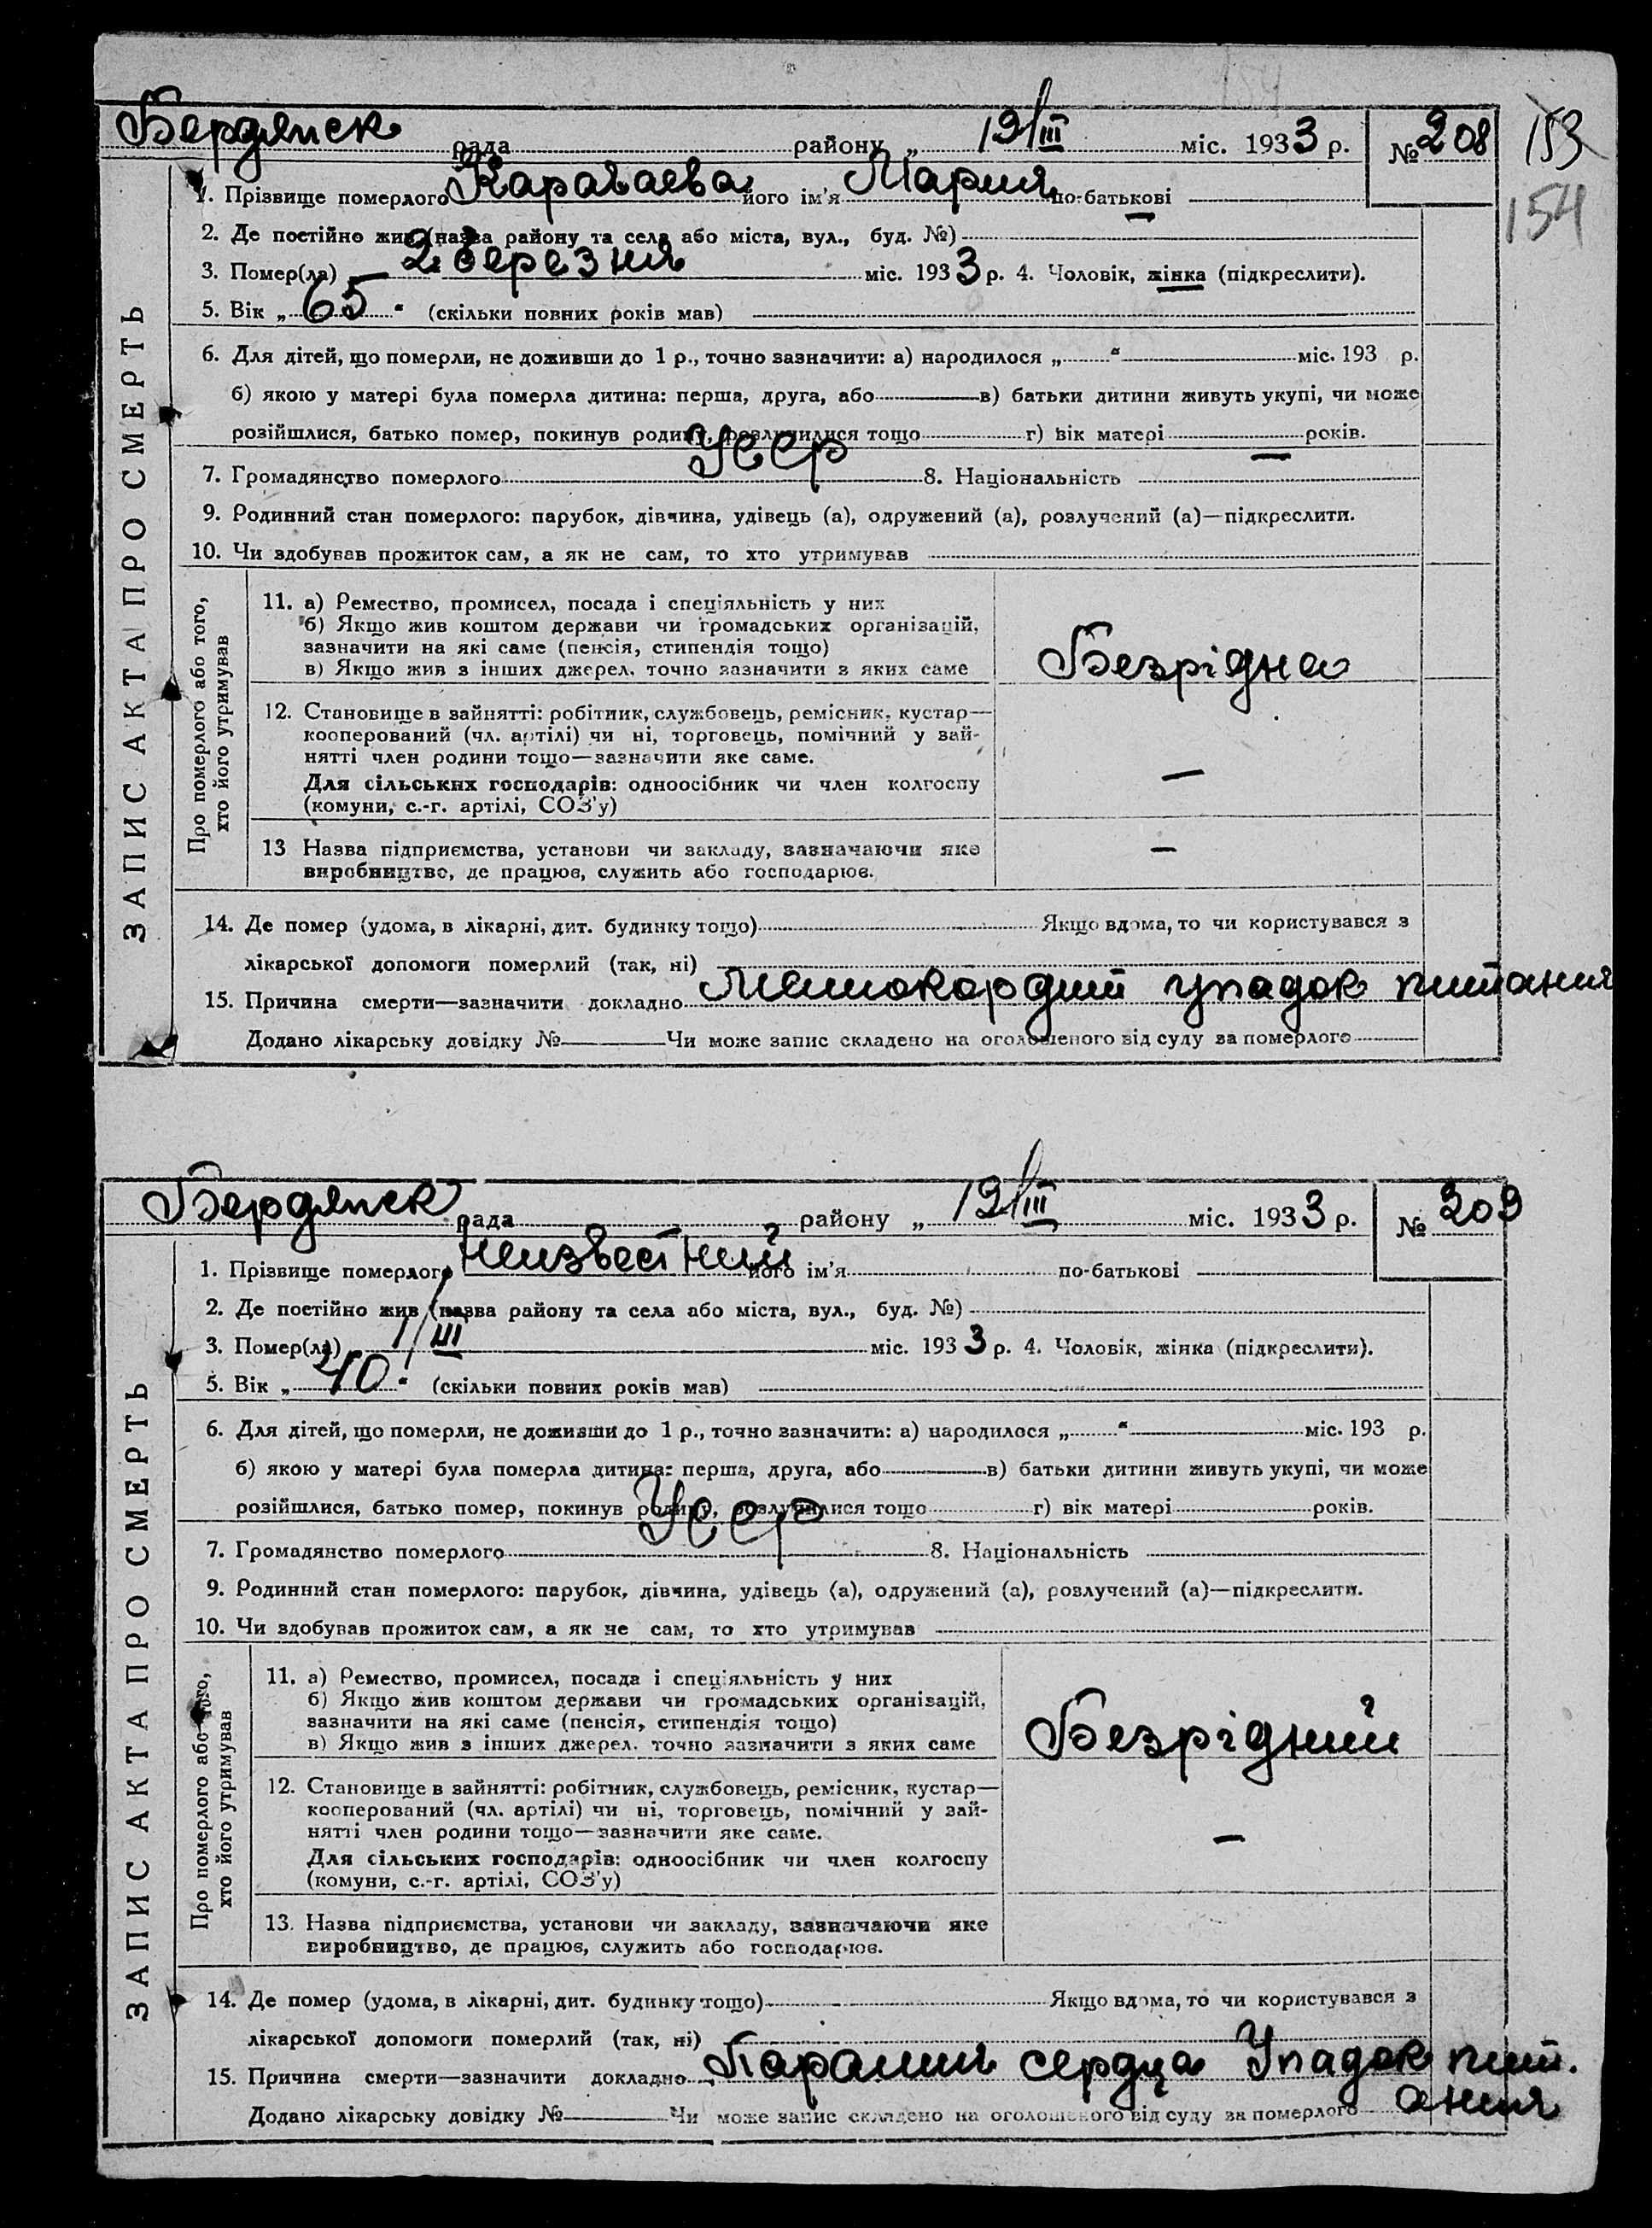 Бердянск рада району „ 12/III міс. 1933 р. № 208
153
154
1. Прізвище померлого Караваева його ім'я Мария по-батькові —
2. Де постійно жив (назва району та села або міста, вул., буд. №)
3. Помер(ла) 2 березня міс. 1933 р. 4. Чоловік, жінка (підкреслити).
5. Вік „ 65 “ (скільки повних років мав)
6. Для дітей, що померли, не доживши до 1 р., точно зазначити: а) народилося „ “ міс. 193 р.
б) якою у матері була померла дитина: перша, друга, або в) батьки дитини живуть укупі, чи може
розійшлися, батько помер, покинув родину, розлучилися тощо г) вік матері років.
7. Громадянство померлого УССР 8. Національність —
9. Родинний стан померлого: парубок, дівчина, удівець (а), одружений (а), розлучений (а)—підкреслити.
10. Чи здобував прожиток сам, а як не сам, то хто утримував
ЗАПИС АКТА ПРО СМЕРТЬ
Про померлого або того,
хто його утримував
11. а) Ремество, промисел, посада і спеціяльність у них
б) Якщо жив коштом держави чи громадських організацій,
зазначити на які саме (пенсія, стипендія тощо)
в) Якщо жив з інших джерел, точно зазначити з яких саме
Безрідна
12. Становище в зайнятті: робітник, службовець, ремісник, кустар—
кооперований (чл. артілі) чи ні, торговець, помічний у зай-
нятті член родини тощо—зазначити яке саме.
Для сільських господарів: одноосібник чи член колгоспу
(комуни, с.-г. артілі, СОЗ'у)
—
13 Назва підприємства, установи чи закладу, зазначаючи яке
виробництво, де працює, служить або господарює.
—
14. Де помер (удома, в лікарні, дит. будинку тощо) Якщо вдома, то чи користувався з
лікарської допомоги померлий (так, ні)
15. Причина смерти—зазначити докладно упадок питания
Додано лікарську довідку № Чи може запис складено на оголошеного від суду за померлого
Бердянск рада району „ 12/III міс. 1933 р. № 209
1. Прізвище померлого неизвестний його ім'я по-батькові
2. Де постійно жив (назва району та села або міста, вул., буд. №)
3. Помер(ла) 1/III міс. 1933 р. 4. Чоловік, жінка (підкреслити).
5. Вік „ 40 “ (скільки повних років мав)
6. Для дітей, що померли, не доживши до 1 р., точно зазначити: а) народилося „ “ міс. 193 р.
б) якою у матері була померла дитина: перша, друга, або в) батьки дитини живуть укупі, чи може
розійшлися, батько помер, покинув родину, розлучилися тощо г) вік матері років.
7. Громадянство померлого УССР 8. Національність
9. Родинний стан померлого: парубок, дівчина, удівець (а), одружений (а), розлучений (а)—підкреслити.
10. Чи здобував прожиток сам, а як не сам, то хто утримував
ЗАПИС АКТА ПРО СМЕРТЬ
Про померлого або того,
хто його утримував
11. а) Ремество, промисел, посада і спеціяльність у них
б) Якщо жив коштом держави чи громадських організацій,
зазначити на які саме (пенсія, стипендія тощо)
в) Якщо жив з інших джерел, точно зазначити з яких саме
Безрідний
12. Становище в зайнятті: робітник, службовець, ремісник, кустар—
кооперований (чл. артілі) чи ні, торговець, помічний у зай-
нятті член родини тощо—зазначити яке саме.
Для сільських господарів: одноосібник чи член колгоспу
(комуни, с.-г. артілі, СОЗ'у)
—
13. Назва підприємства, установи чи закладу, зазначаючи яке
виробництво, де працює, служить або господарює.
14. Де помер (удома, в лікарні, дит. будинку тощо) Якщо вдома, то чи користувався з
лікарської допомоги померлий (так, ні)
15. Причина смерти—зазначити докладно Паралич сердца Упадок пит.
ания
Додано лікарську довідку № Чи може запис складено на оголошеного від суду за померлого